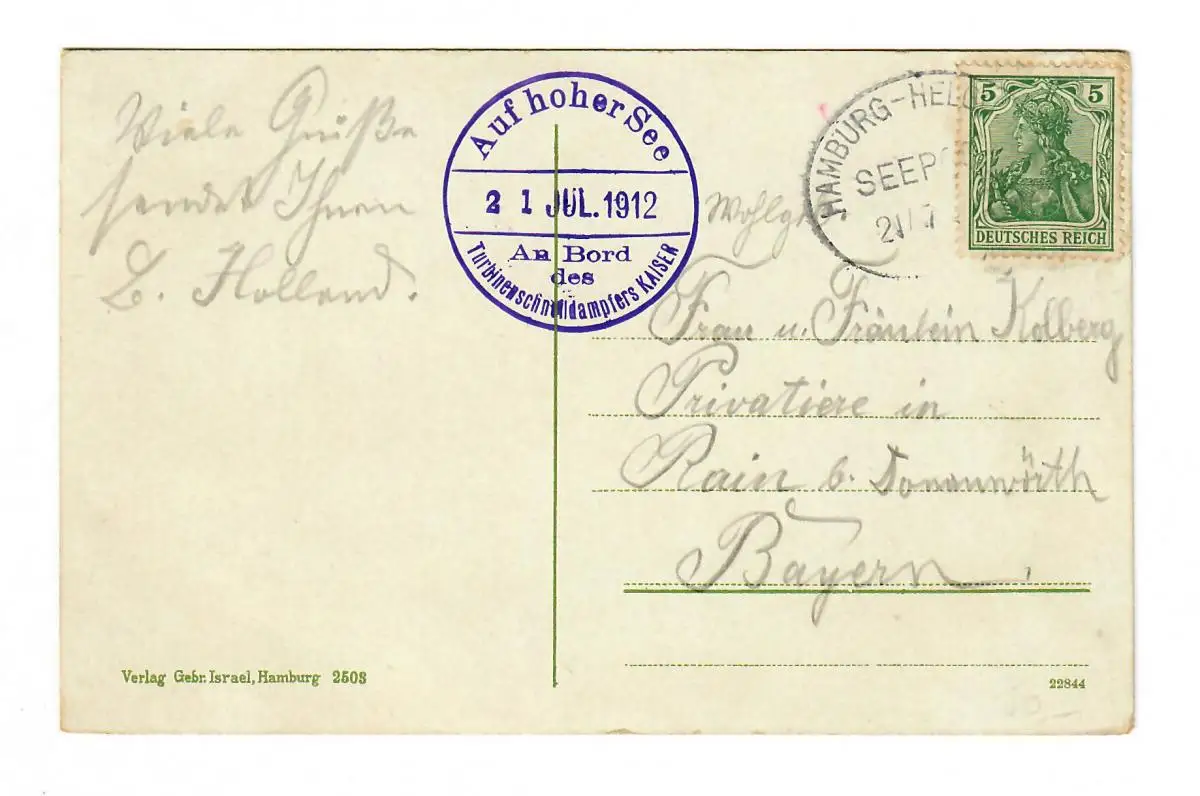 Viele Grüße
sendet Ihnen
L. Holland.
Auf hoher See
2 1 JUL. 1912
An Bord
des
Turbinenschnelldampfers KAISER
HAMBURG-HELG
SEEPO
5 5
DEUTSCHES REICH
Frau u. Fräulein Kolberg
Privatiere in
Rain b. Donauwörth
Bayern.
Verlag Gebr. Israel, Hamburg 2503
22844